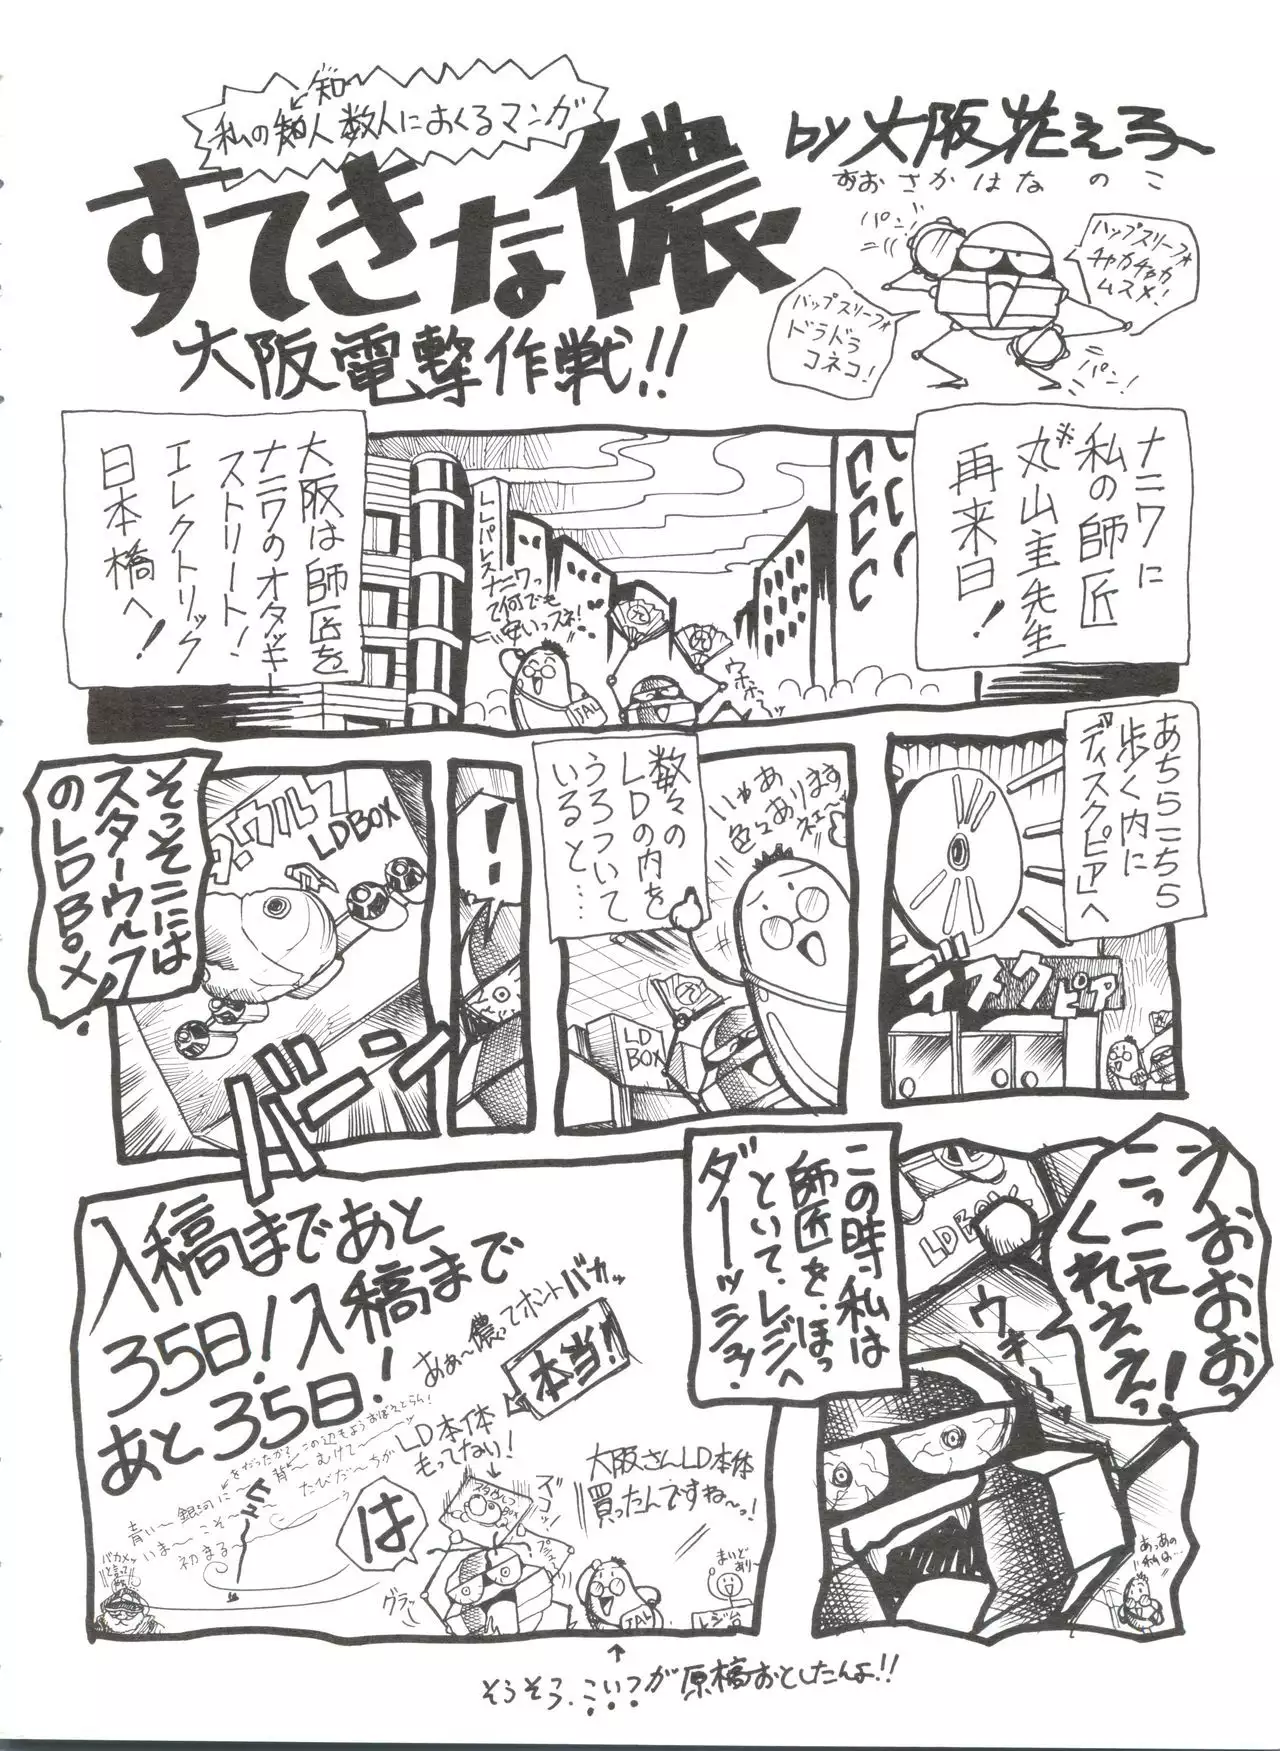 知
私の知人数人におくるマンガ
すてきな儂
大阪電撃作戦!!
by 大阪花え子
おおさかはなのこ
パン!
ハップスリーフォ
チャカチャカ
ムスメ!
バップスリーフォ
ドラドラ
コネコ!
パン!
ナニワに
私の師匠
※丸山主先生
再来日!
大阪は師匠を
ナニワのオタッキー
ストリート!
エレクトリック
日本橋へ!
LLパレス
ナニワっ
て何でも
安いっスネ!
JAL
あちらこちら
歩く内に
ディスクピアへ
ディスクピア
いやぁあ
色々ありますネェ〜
数々の
LDの内を
うろついて
いると…
LD
BOX
!
そっそこには
スターウルフ
のLDBOX!
LDBOX
バーン
うおおおおっ
こっこれ
くれええぇっ!
LDBOX
ウキー
あっあの
私は…
この時私は
師匠を、ほっ
といて、レジへ
ダーッシュ!
入稿まであと
35日!入稿まで
あと35日!
あぁ〜儂ってホントバカッ
本当!
LD本体
もってない!
大阪さんLD本体
買ったんですね〜っ!
は
グラッ
JAL
まいど
あり〜
レジ台
青い〜銀河に〜
いま〜こそ〜
初まる〜
たびだ〜ちが
バカメッ
そうそう、こいつが原稿おとしたんよ!!